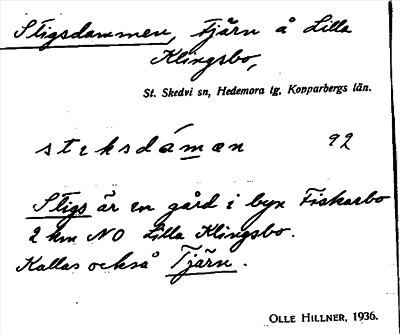 Stigsdammen, tjärn å Lilla
Klingsbo,
St. Skedvi sn, Hedemora tg, Kopparbergs län.
stɩksdámæn 92
Stigs är en gård i byn Fiskarbo
2 km NO Lilla Klingsbo.
Kallas också Tjärn.
OLLE HILLNER, 1936.